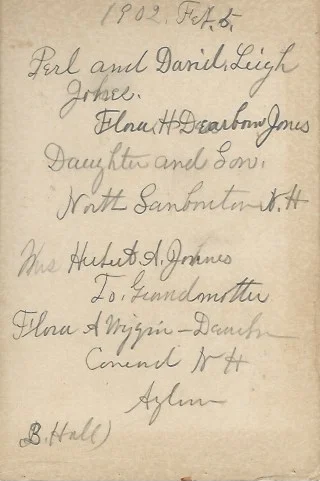 1902. Feb. 5.
Perl and David. Leigh
Jones.
Flora H Dearborn Jones
Daughter and Son.
North Sanbornton N. H
Mrs Hubert A. Johnes
To. Grandmother
Flora A Wiggin - 
Concord N H
B. Hall)